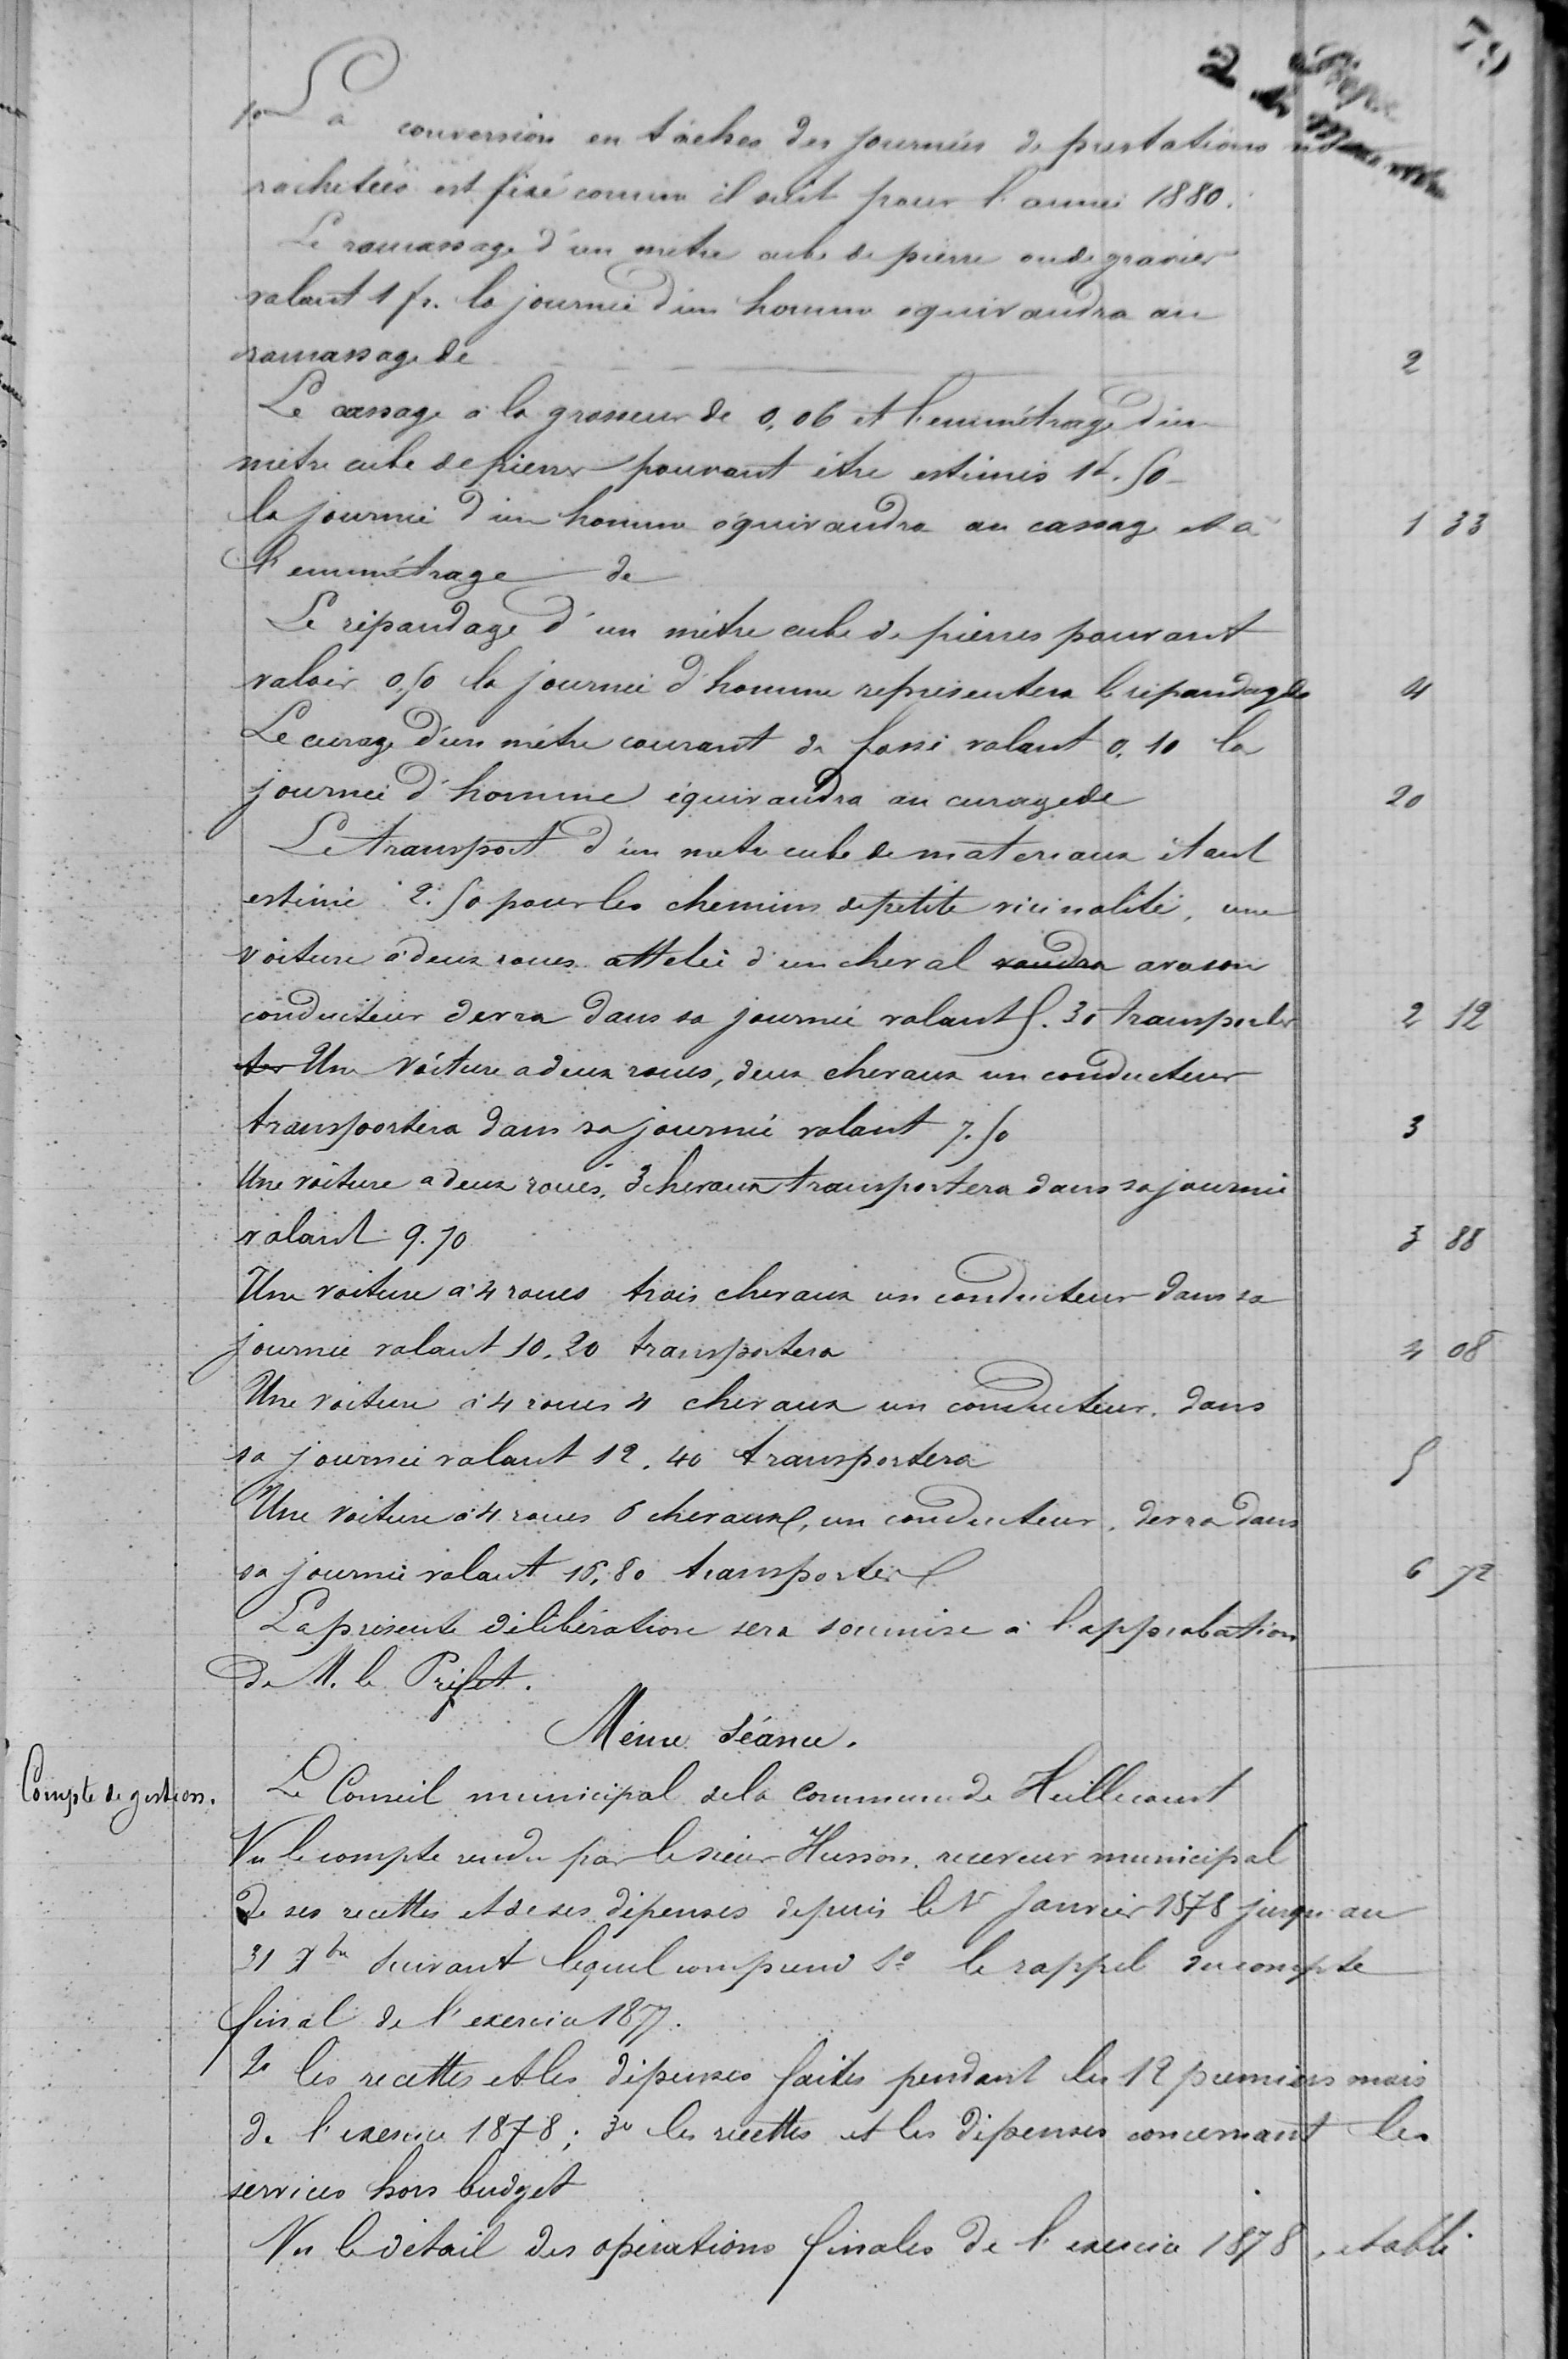 79
2
1° La conversion en tâches des journées de prestations
rachetées est fixé comme il suit pour l'année 1880.
Le ramassage d'un mètre cube de pierre ou de gravier
valant 1 fr. la journée d'un homme équivaudra au
ramassage de 2
Le cassage à la grosseur de 0,06 et l'emmétrage d'un
mètre cube de pierres pouvant être estimés 1f.50
la journée d'un homme équivaudra au cassage et à 1 33
l'emmétrage de
Le répandage d'un mètre cube de pierres pouvant
valoir 0,50 la journée d'homme représentera le répandage de 4
Le curage d'un mètre courant de fossé valant 0,10 la
journée d'homme équivaudra au curage de 20
Le transport d'un mètre cube de materiaux étant
estimé 2.50 pour les chemins de petite vicinalité, une
voiture à deux roues attelée d'un cheval vaudra avec son
conducteur devra dans sa journée valant 5.30 transporter 2 12
ter Une Voiture a deux roues, deux chevaux un conducteur
transportera dans sa journée valant 7.50 3
Une voiture a deux roues, 3 chevaux transportera dans sa journée
valant 9.70 3 88
Une voiture à 4 roues trois chevaux un conducteur dans sa
journée valant 10.20 transportera 4 08
Une voiture à 4 roues 4 chevaux un conducteur, dans
sa journée valant 12.40 transportera 5
Une voiture à 4 roues 6 chevaux, un conducteur, devra dans
sa journée valant 16,80 transporter 6 72
La présente délibération sera soumise à l'approbation
de M. le Préfet.
Même Séance.
Compte de gestion.
Le Conseil municipal de la commune de Heillecourt
Vu le compte rendu par le sieur Husson, receveur municipal
De ses recettes et de ses dépenses depuis le 1r Janvier 1878 jusqu'au
31 Xbre suivant lequel comprend 1° le rappel du compte
final de l'exercice 1877.
2° les recettes et les dépenses faites pendant les 12 premiers mois
de l'exercice 1878; 3° les recettes et les dépenses concernant les
services hors budget
Vu le détail des opérations finales de l'exercice 1878, etabli